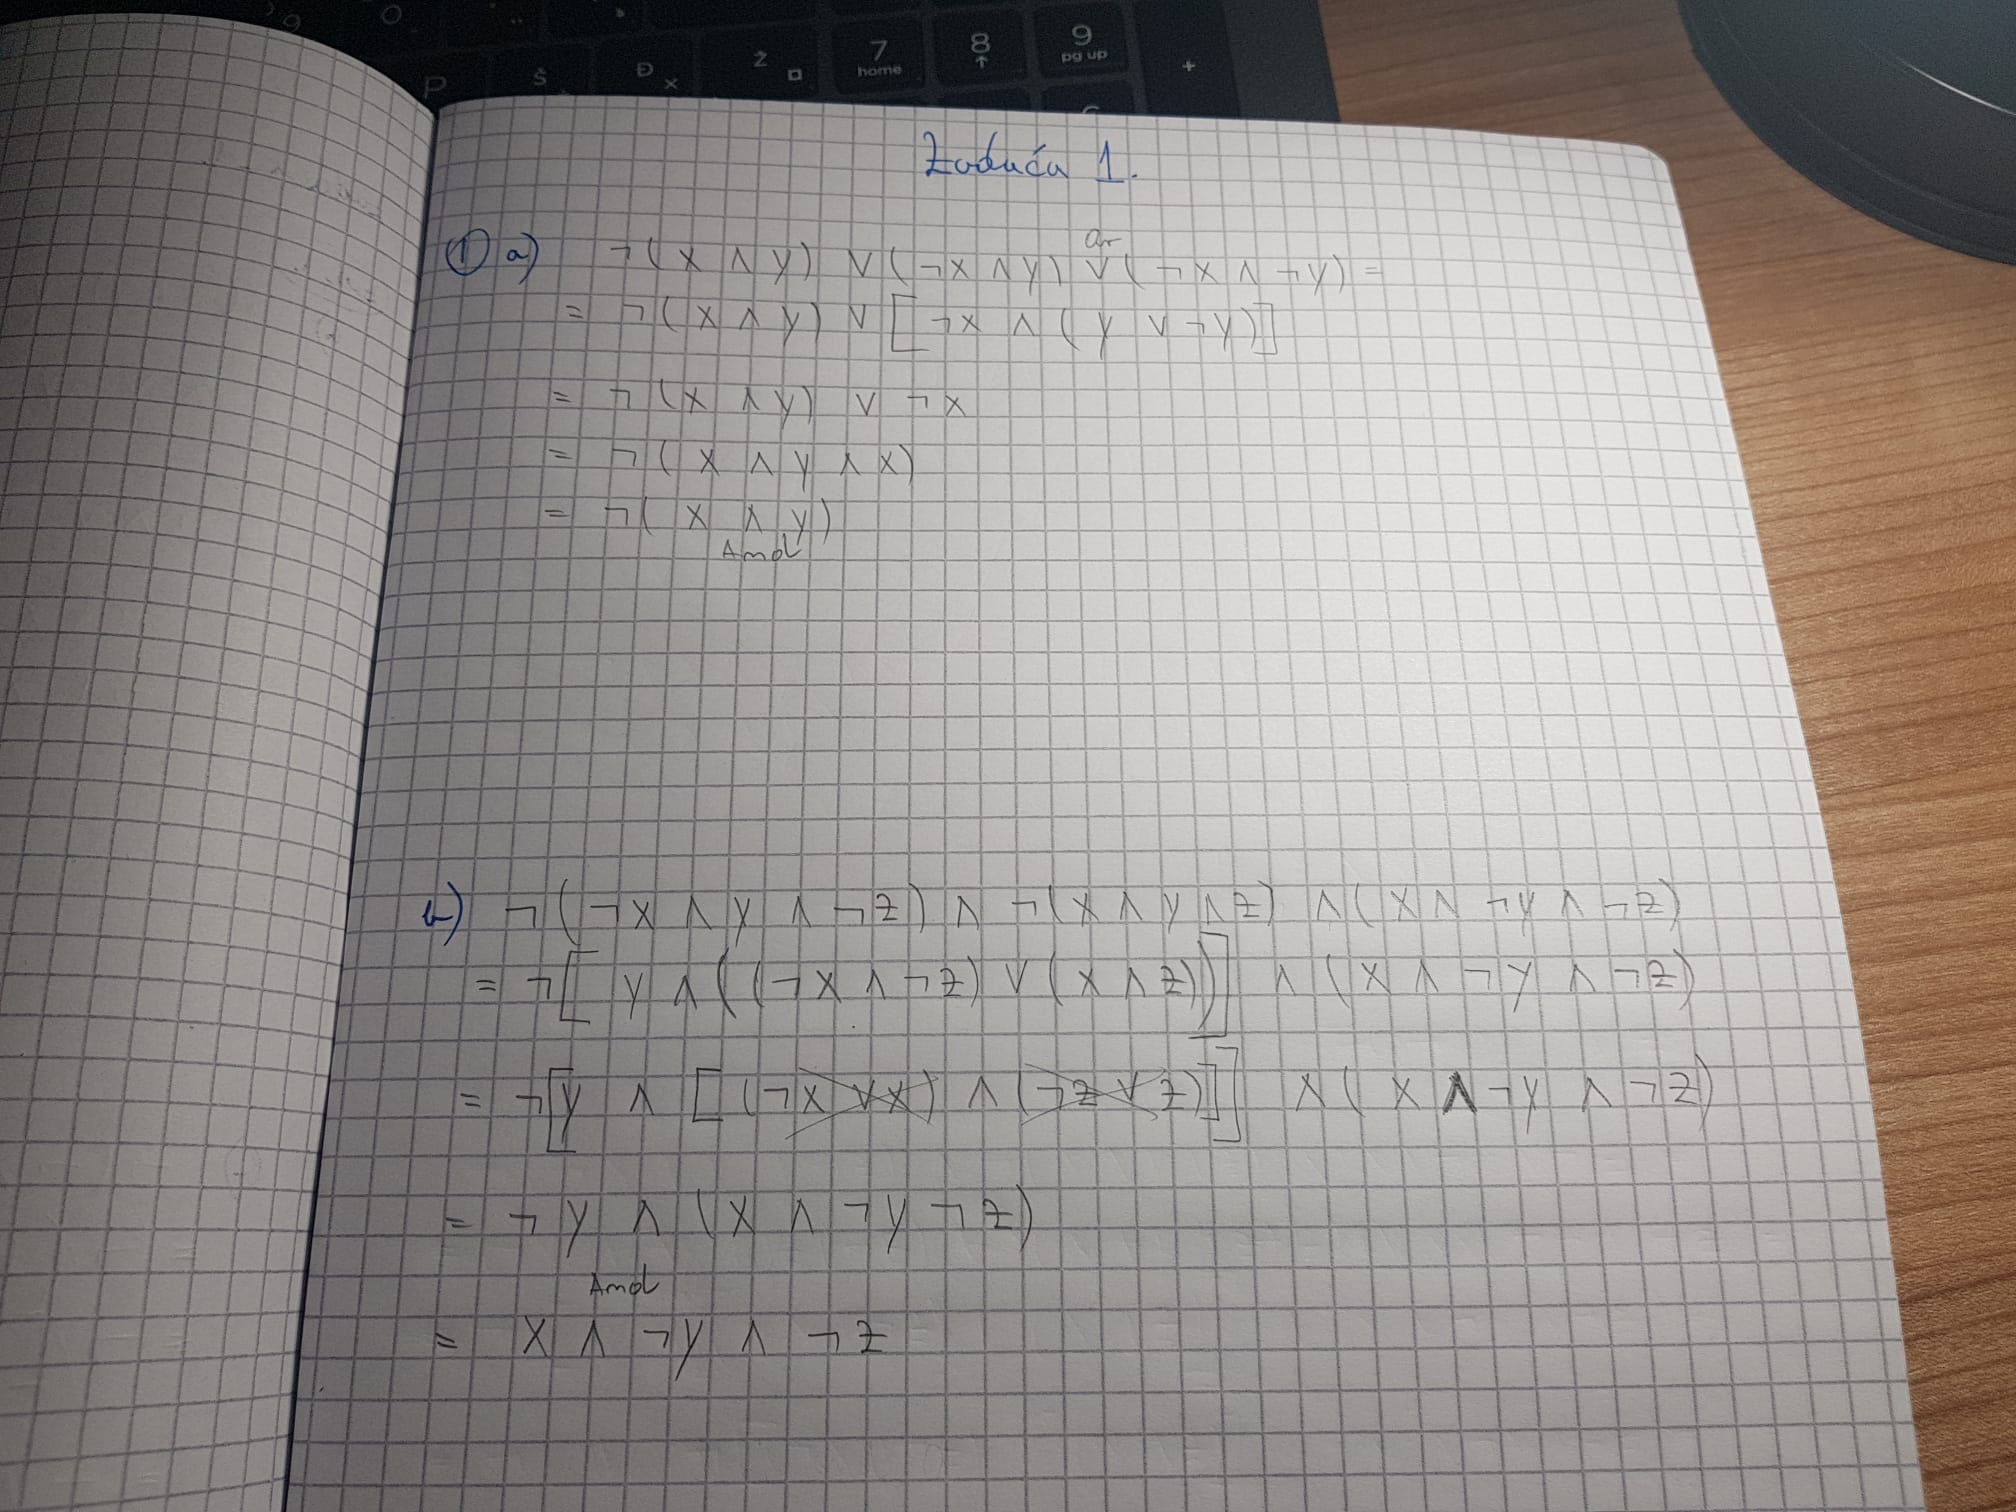 P Š Đ x Ž 7 home 8 ↑ 9 pg up +
Zadaća 1.
① a) ¬(X ∧ y) ∨ (¬X ∧ y) ∨ (¬X ∧ ¬y) =
or
= ¬(X ∧ y) ∨ [¬X ∧ (y ∨ ¬y)]
= ¬(X ∧ y) ∨ ¬X
= ¬(X ∧ y ∧ X)
= ¬(X ∧ y)
And
b) ¬(¬X ∧ y ∧ ¬Z) ∧ ¬(X ∧ y ∧ Z) ∧ (X ∧ ¬y ∧ ¬Z)
= ¬[y ∧ ((¬X ∧ ¬Z) ∨ (X ∧ Z))] ∧ (X ∧ ¬y ∧ ¬Z)
= ¬[y ∧ [(¬X ∨ X) ∧ (¬Z ∨ Z)]] ∧ (X ∧ ¬y ∧ ¬Z)
= ¬y ∧ (X ∧ ¬y ¬Z)
And
= X ∧ ¬y ∧ ¬Z